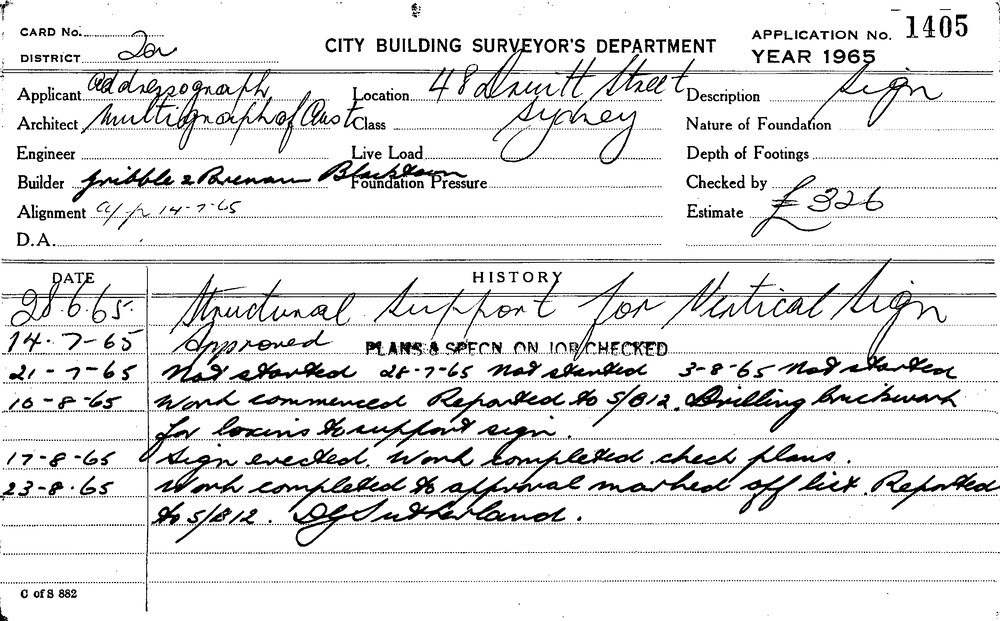 CARD No.
DISTRICT
CITY BUILDING SURVEYOR'S DEPARTMENT
APPLICATION No. 1405
YEAR 1965
Applicant Addressograph
Location 48 Druitt Street
Description Sign
Architect Multigraph of Aust
Class Sydney
Nature of Foundation
Engineer
Live Load
Depth of Footings
Builder Gribble & Brennan Blacktown
Foundation Pressure
Checked by
Alignment a/p 14-7-65
Estimate £326
D.A.
DATE HISTORY
28.6.65. Structural Support for Vertical Sign
14-7-65 Approved PLANS & SPECN. ON JOB CHECKED
21-7-65 Not started 28-7-65 Not started 3-8-65 Not started
10-8-65 Work commenced Reported to S/B12. Drilling brickwork
for loxins to support sign.
17-8-65 Sign erected. Work completed. check plans.
23-8-65 Work completed to approval marked off list. Reported
to S/B12. DG Sutherland.
C of S 882